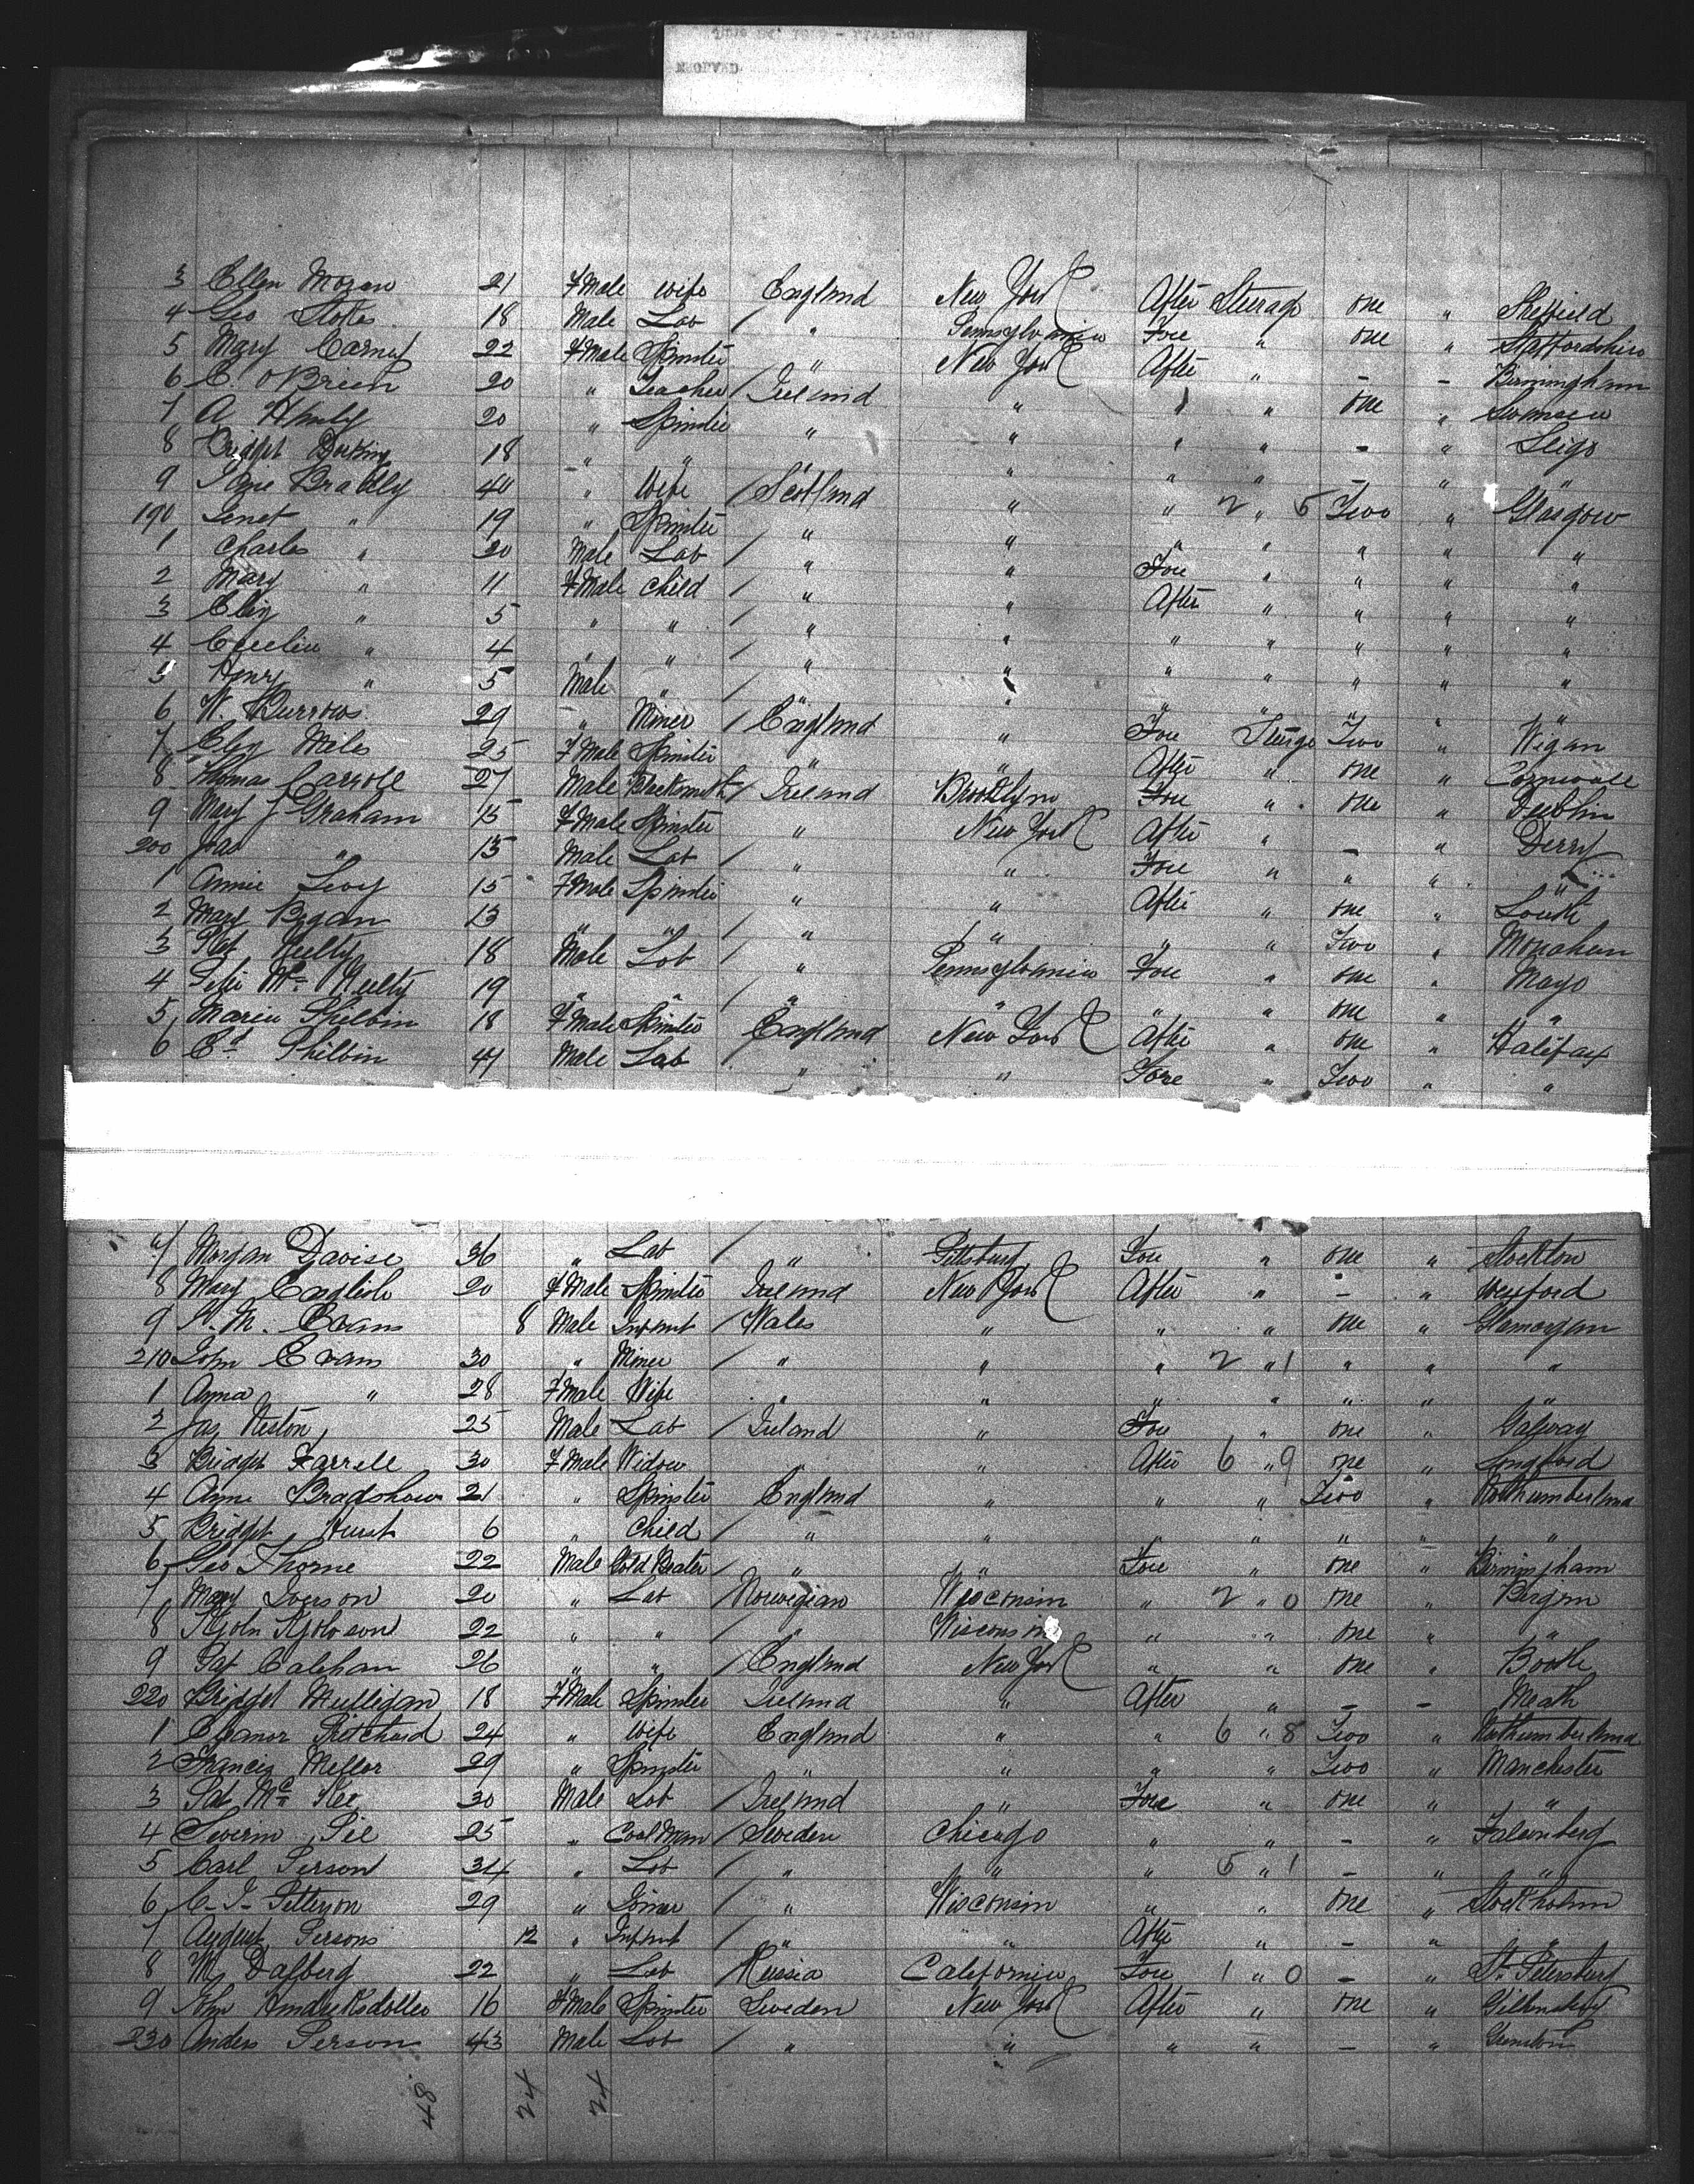 3 Ellen Moran 21 FMale wife England New York After Steerage one " Sheffield
4 Geo Stokes 18 Male Lab / " Pennsylvania Fore " one " Staffordshire
5 Mary Carney 22 FMale Spinster " New York After " - - Birmingham
6 C. OBrien 20 " Teacher / Ireland " " " one " Swansea
7 A 20 " Spinster " " " " - " Sligo
8 Bridget 18 " " " " " " - " "
9 Jane Bradly 40 " Wife / Scotland " " 2 " 5 Two " Glasgow
190 Jenet " 19 " Spinster " " " " " " "
1 Charles " 20 Male Lab / " " Fore " " " "
2 Mary " 11 FMale child / " " After " " " "
3 Eliz " 5 " " / " " " " " " "
4 Cecelia " 4 " " / " " " " " " "
5 Henry " 5 Male " / " " " " " " "
6 W. Burrows 29 " Miner / England " Fore Sterge Two " Wigan
7 Eliz Miles 25 FMale Spinster " " After " one " Cornwall
8 Thomas Carroll 27 Male Blcksmith / Ireland Brooklyn Fore " one " Dublin
9 Mary J Graham 15 FMale Spinster " New York After " - " Derry
200 Jas " 13 Male Lab / " " Fore " " " "
1 Annie Levy 15 FMale Spinster " " After " one " Louth
2 Mary Began 13 " " / " " " " Two " Monahan
3 Pat Nulty 18 Male Lab / " Pennsylvania Fore " one " Mayo
4 Peter Mc Nulty 19 " " / " " " " one " "
5 Maria Philbin 18 FMale Spinster England New York After " one " Halifax
6 Ed Philbin 41 Male Lab " " Fore " Two " "
7 Morgan Davise 36 " Lab / " Pittsburg Fore " one " Stockton
8 Mary English 20 FMale Spinster Ireland New York After " - " Wexford
9 M. Evans 8 Male Infant / Wales " " " one " Glamorgan
210 John Evans 30 " Miner / " " " 2 " 1 " " "
1 Anna " 28 FMale Wife " " " " " " "
2 Jas Neston 25 Male Lab / Ireland " Fore " one " Galway
3 Bridget Farrell 30 FMale Widow " " After 6 " 9 one " Longford
4 Anne Bradshaw 21 " Spinster England " " " Two " Northumberland
5 Bridget Hurst 6 " Child / " " " " " " "
6 Geo Thorne 22 Male Gold Beater / " " Fore " one " Birmingham
7 Mary Iverson 20 " Lab / Norwegian Wisconsin " 2 " 0 one " Bergen
8 22 " " / " Wisconsin " " one " "
9 Pat Calehan 26 " " / England New York " " one " Bootle
220 Bridget Mulligan 18 FMale Spinster Ireland " After " - - Meath
1 Eleanor Pritchard 24 " wife England " " 6 " 8 Two " Northumberland
2 Francis Mellor 29 " Spinster " " " " Two " Manchester
3 Pat Mc Kee 30 Male Lab / Ireland " Fore " one " "
4 Severin Pil 25 " Coal Man / Sweden Chicago " " - " Falconberg
5 Carl Person 34 " Lab / " " " 5 " 1 - " "
6 C. J. Petterson 29 " Joiner / " Wisconsin " " one " Stockholm
7 August Persons 12 " Infant / " " After " - " "
8 M. Dalberg 22 " Lab / Russia California Fore 1 " 0 - " St. Petersburg
9 16 FMale Spinster Sweden New York After " one "
230 Anders Person 43 Male Lab / " " " " - "
48 24 24